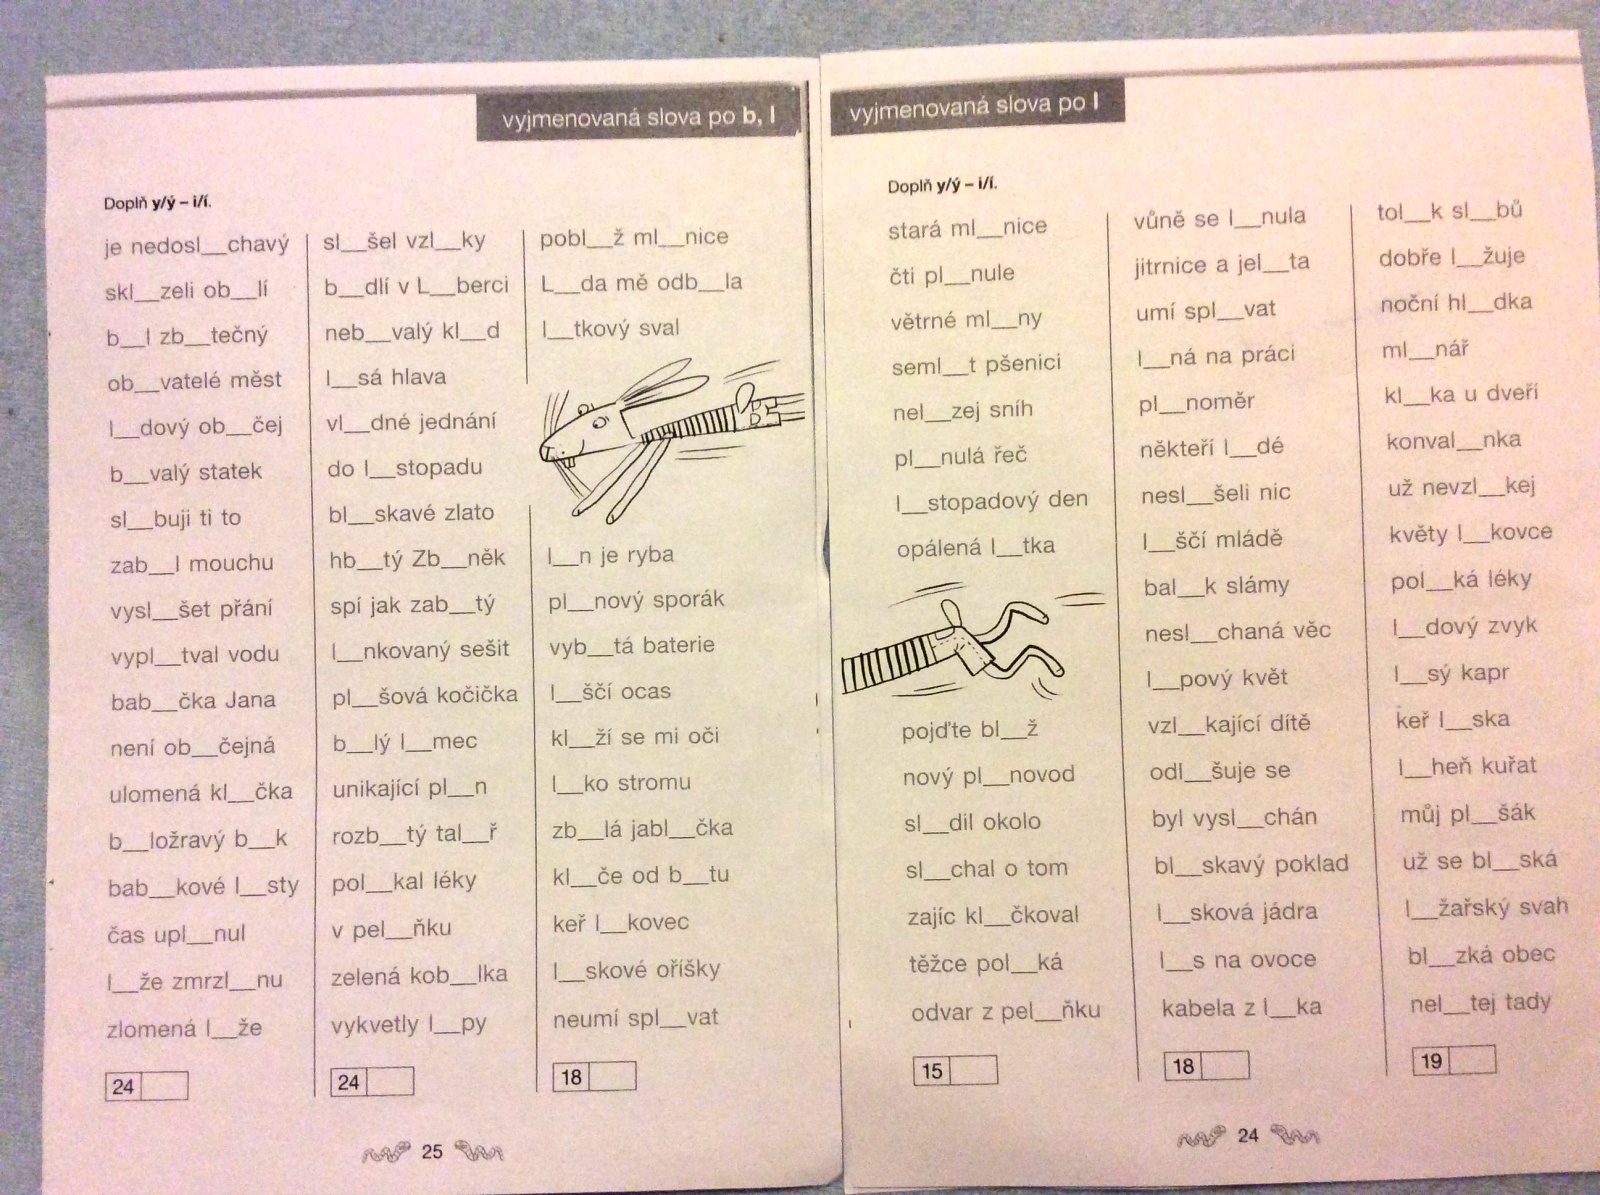 vyjmenovaná slova po b, l
Doplň y/ý – i/í.
je nedosl__chavý
skl__zeli ob__lí
b__l zb__tečný
ob__vatelé měst
l__dový ob__čej
b__valý statek
sl__buji ti to
zab__l mouchu
vysl__šet přání
vypl__tval vodu
bab__čka Jana
není ob__čejná
ulomená kl__čka
b__ložravý b__k
bab__kové l__sty
čas upl__nul
l__že zmrzl__nu
zlomená l__že
24
sl__šel vzl__ky
b__dlí v L__berci
neb__valý kl__d
l__sá hlava
vl__dné jednání
do l__stopadu
bl__skavé zlato
hb__tý Zb__něk
spí jak zab__tý
l__nkovaný sešit
pl__šová kočička
b__lý l__mec
unikající pl__n
rozb__tý tal__ř
pol__kal léky
v pel__ňku
zelená kob__lka
vykvetly l__py
24
pobl__ž ml__nice
L__da mě odb__la
l__tkový sval
l__n je ryba
pl__nový sporák
vyb__tá baterie
l__ščí ocas
kl__ží se mi oči
l__ko stromu
zb__lá jabl__čka
kl__če od b__tu
keř l__kovec
l__skové oříšky
neumí spl__vat
18
25
vyjmenovaná slova po l
Doplň y/ý – i/í.
stará ml__nice
čti pl__nule
větrné ml__ny
seml__t pšenici
nel__zej sníh
pl__nulá řeč
l__stopadový den
opálená l__tka
pojďte bl__ž
nový pl__novod
sl__dil okolo
sl__chal o tom
zajíc kl__čkoval
těžce pol__ká
odvar z pel__ňku
15
vůně se l__nula
jitrnice a jel__ta
umí spl__vat
l__ná na práci
pl__noměr
někteří l__dé
nesl__šeli nic
l__ščí mládě
bal__k slámy
nesl__chaná věc
l__pový květ
vzl__kající dítě
odl__šuje se
byl vysl__chán
bl__skavý poklad
l__sková jádra
l__s na ovoce
kabela z l__ka
18
tol__k sl__bů
dobře l__žuje
noční hl__dka
ml__nář
kl__ka u dveří
konval__nka
už nevzl__kej
květy l__kovce
pol__ká léky
l__dový zvyk
l__sý kapr
keř l__ska
l__heň kuřat
můj pl__šák
už se bl__ská
l__žařský svah
bl__zká obec
nel__tej tady
19
24